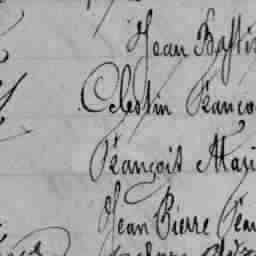 Jean Baptis
Celestin Franco
François Mari
Jean Pierre Fran